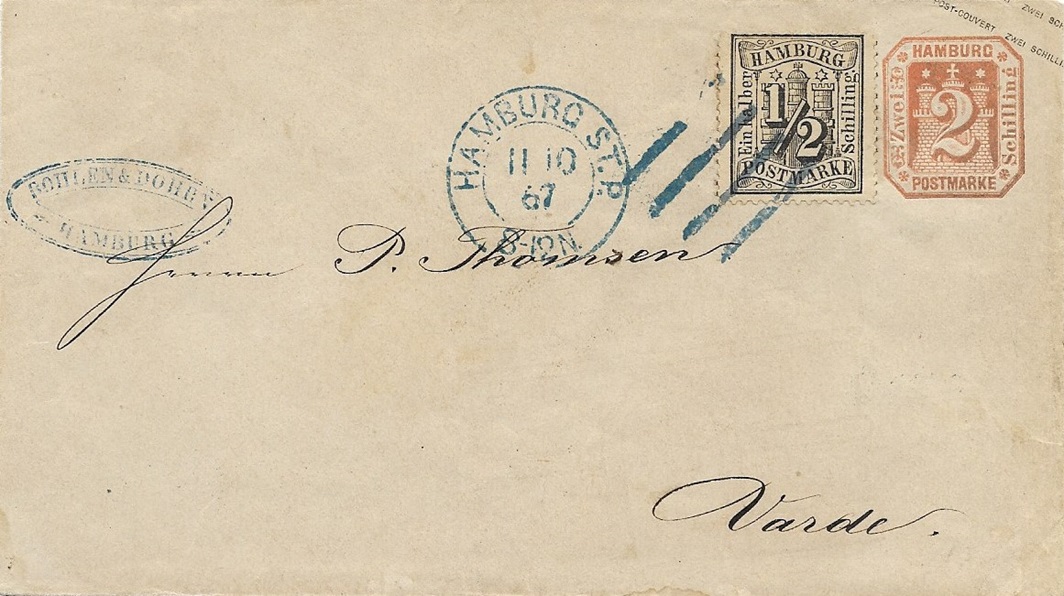 POST-COUVERT ZWEI SCHILLI
ZWEI SCH
HAMBURG
Ein halber
1/2
Schilling
POSTMARKE
HAMBURG
Zwei
2
Schilling
POSTMARKE
HAMBURG ST.P.
11 10
67
8-12 N.
BOHLEN &
HAMBURG
Herrn P. Thomsen
Varde.